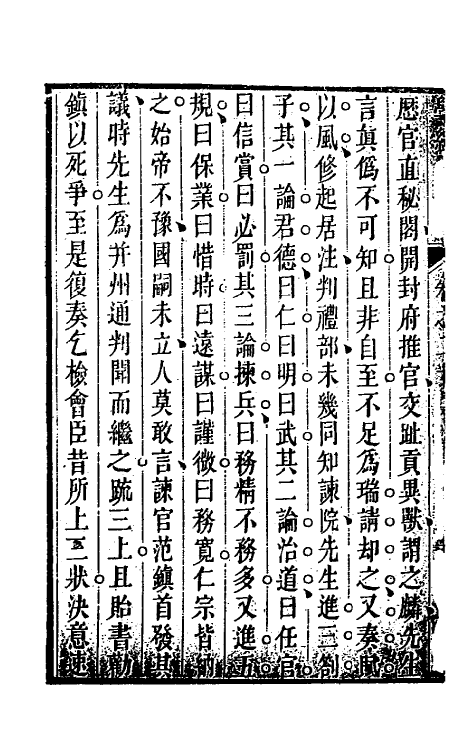 歷官直秘閣開封府推官交趾貢異獸謂之麟先生
言眞僞不可知且非自至不足爲瑞請却之又奏賦
以風修起居注判禮部未幾同知諫院先生進三劄
子其一論君德曰仁曰明曰武其二論治道曰任官
曰信賞曰必罰其三論揀兵曰務精不務多又進五
規曰保業曰惜時曰遠謀曰謹微曰務寬仁宗皆納
之始帝不豫國嗣未立人莫敢言諫官范鎭首發其
議時先生爲并州通判聞而繼之䟽三上且貽書勸
鎮以死爭至是復奏乞檢會臣昔所上三狀決意速